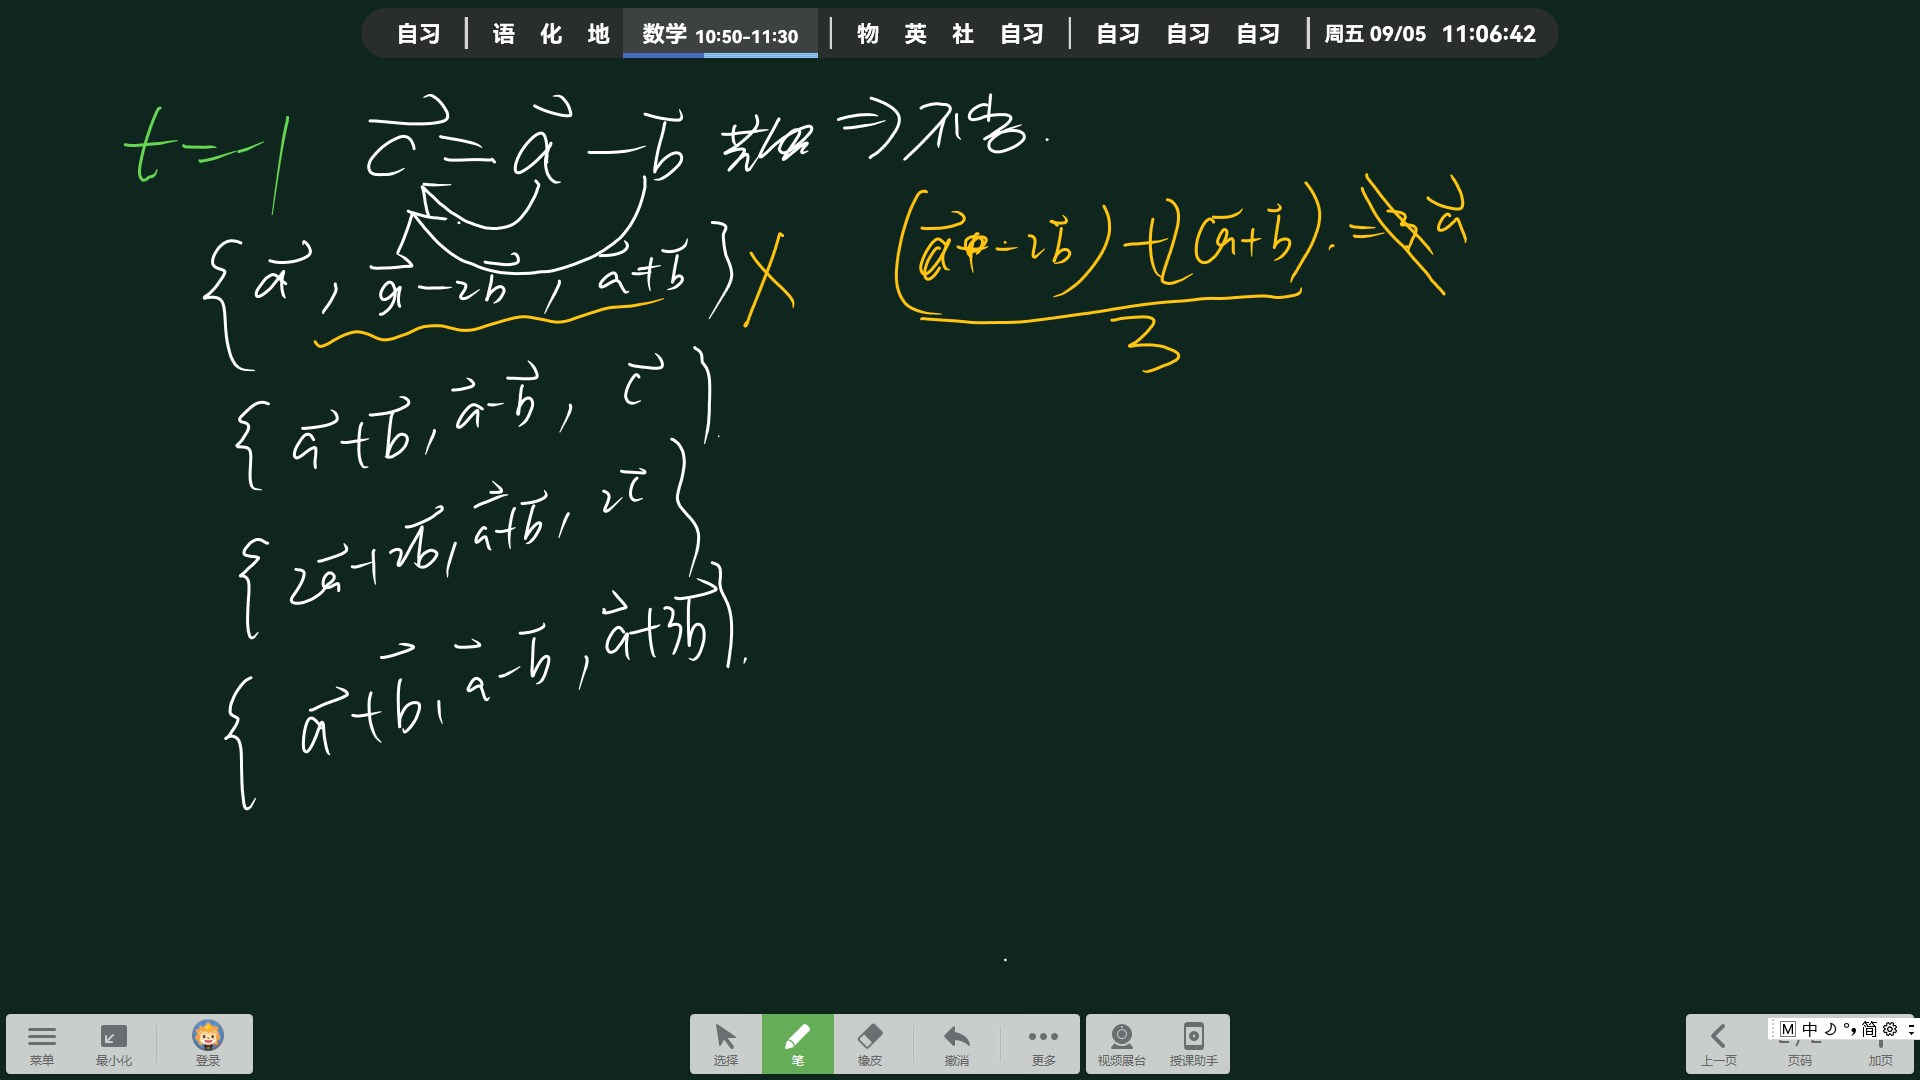 自习 | 语 化 地 数学 10:50-11:30 | 物 英 社 自习 | 自习 自习 自习 | 周五 09/05 11:06:42
t=-1 c⃗=a⃗-b⃗ 共面 ⇒ 不含.
{a⃗, a⃗-2b⃗, a⃗+b⃗} X
((a⃗-2b⃗)+2(a⃗+b⃗))/3 = a⃗
{a⃗+b⃗, a⃗-b⃗, c⃗}.
{2a⃗+2b⃗, a⃗+b⃗, 2c⃗}
{a⃗+b⃗, a⃗-b⃗, a⃗+3b⃗}.
菜单 最小化 登录 选择 笔 橡皮 撤消 更多 视频展台 授课助手 上一页 页码 加页
M 中 简